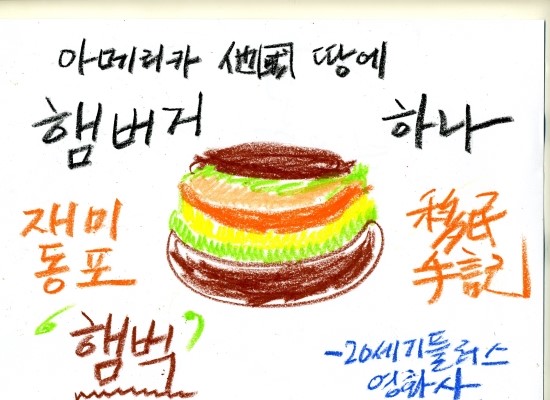 아메리카 他國 땅에
햄버거 하나
재미
동포
移民
手記
'햄벅'
-20세기들러스
영화사